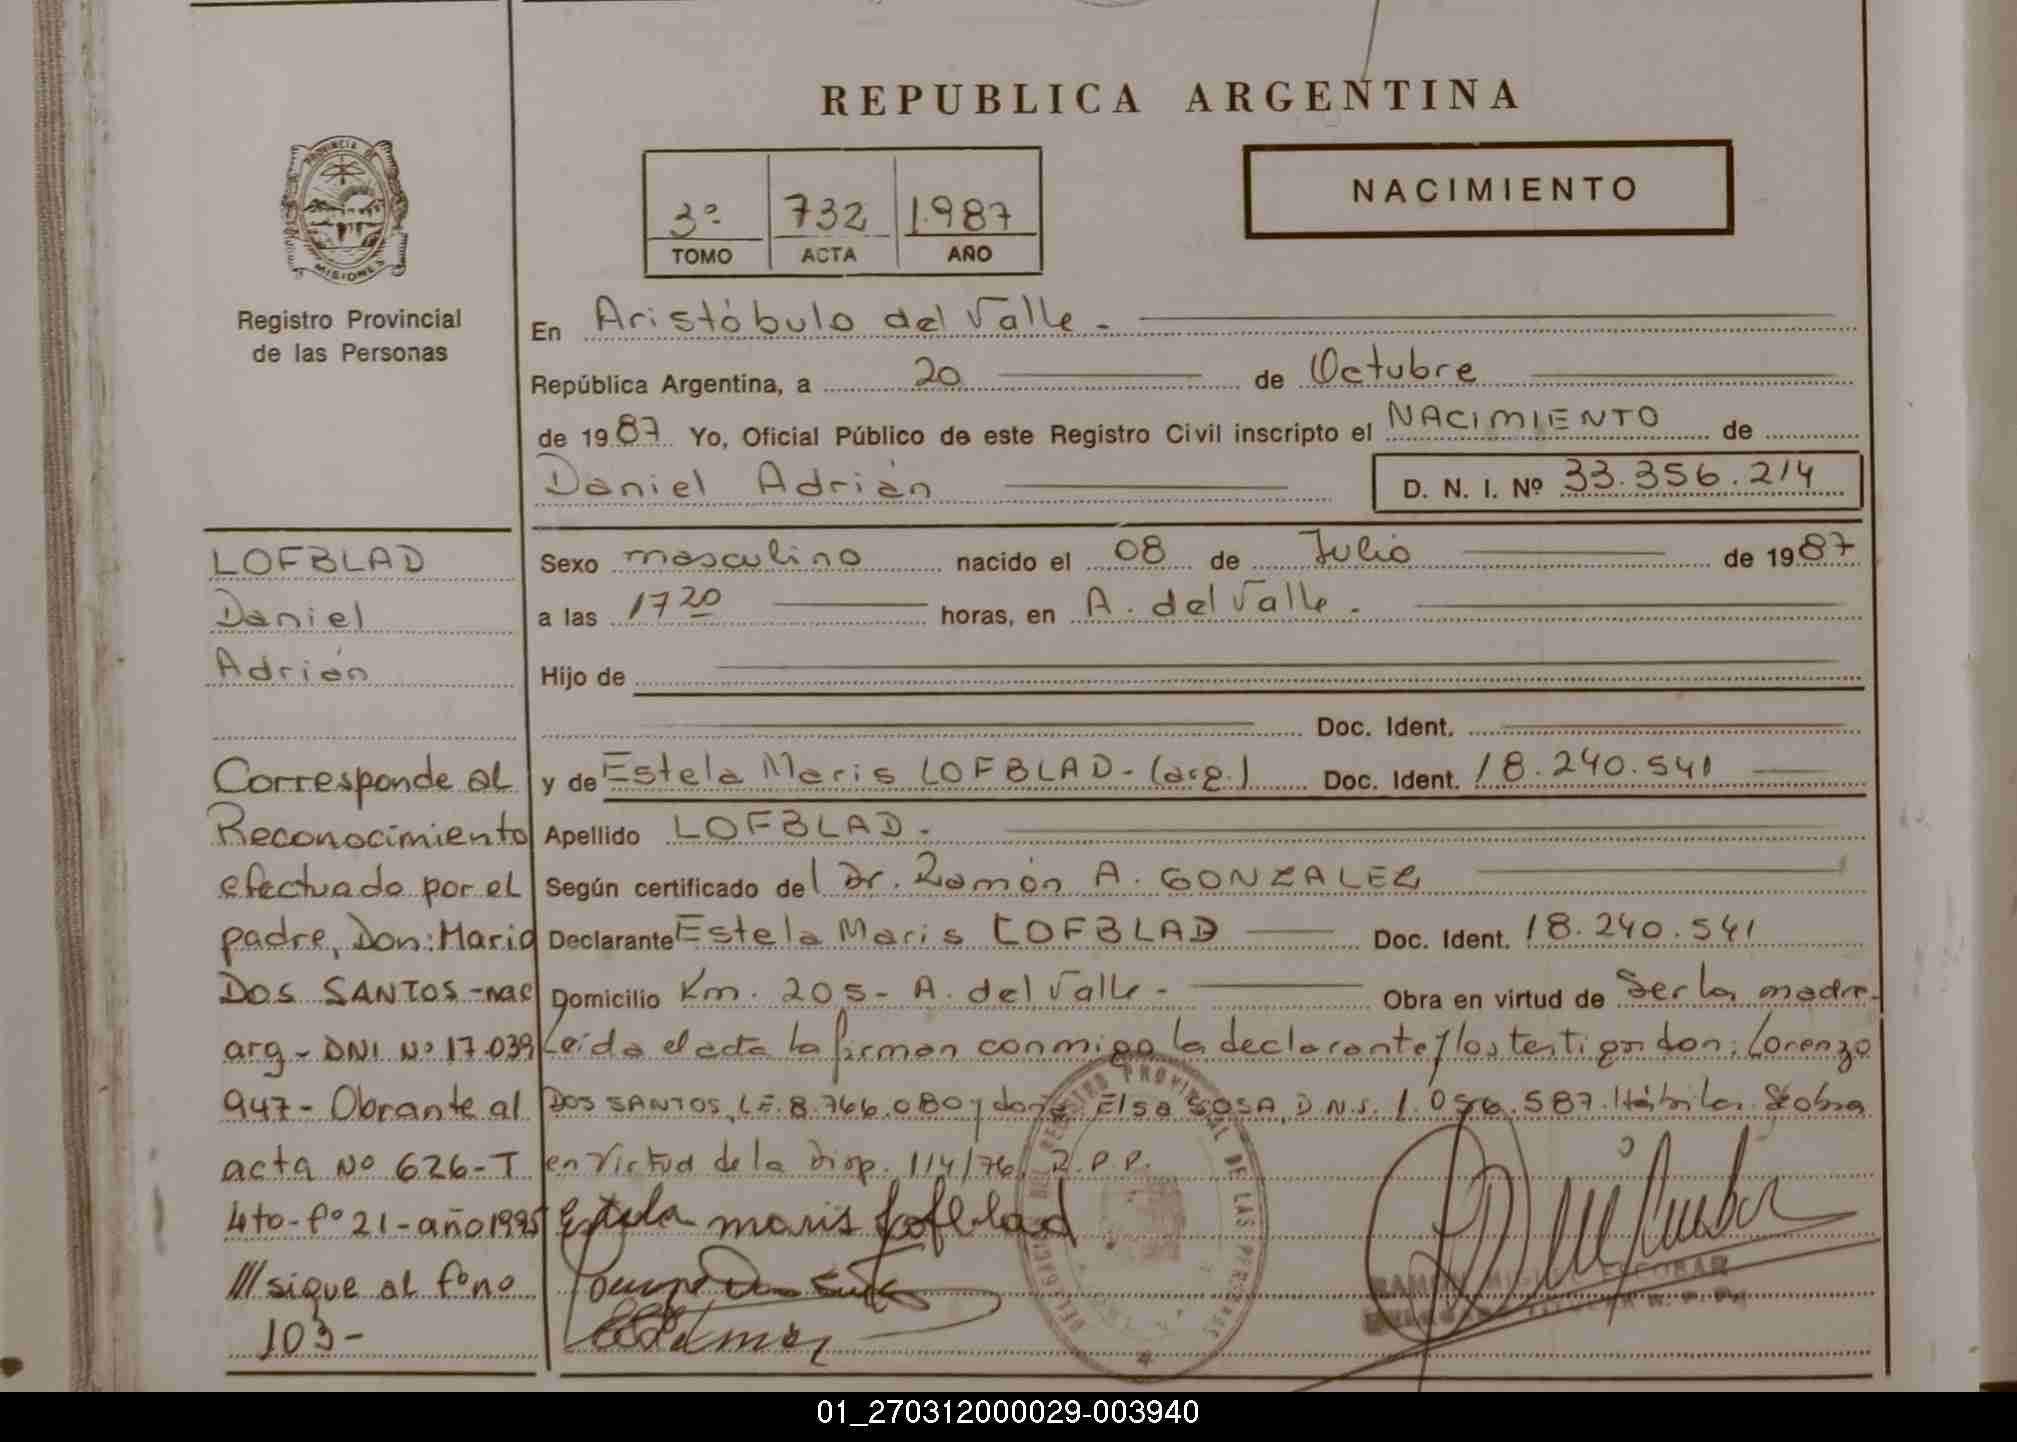 REPUBLICA ARGENTINA
PROVINCIA DE
MISIONES
Registro Provincial
de las Personas
3º 732 1.987
TOMO ACTA AÑO
NACIMIENTO
En Aristóbulo del Valle.-
República Argentina, a 20 de Octubre
de 1987 Yo, Oficial Público de este Registro Civil inscripto el NACIMIENTO de
Daniel Adrián D. N. I. Nº 33.356.214
Sexo masculino nacido el 08 de Julio de 1987
a las 17 20 horas, en A. del Valle.
Hijo de
Doc. Ident.
y de Estela Maris LOFBLAD-(arg.) Doc. Ident. 18.240.541
Apellido LOFBLAD.
Según certificado del Dr. Ramón A. GONZALEZ
Declarante Estela Maris LOFBLAD Doc. Ident. 18.240.541
Domicilio Km. 205- A. del Valle- Obra en virtud de Ser la madre.-
Leída el acta la firman conmigo la declarante y los testigos don: Lorenzo
DOS SANTOS, L.E. 8.766.080 y doña Elsa SOSA, D.N.I. 1.056.587. Hábiles. Se obra
en Virtud de la Disp. 114/76. R.P.P.
Estela maris Lofblad
LOFBLAD
Daniel
Adrián
Corresponde al
Reconocimiento
efectuado por el
padre, Don: Mario
DOS SANTOS -nac
arg- DNI Nº 17.039
947- Obrante al
acta Nº 626-T
4to-fº 21-año1995
///sigue al fº nº
103-
REGISTRO PROVINCIAL DE LAS PERSONAS
01_270312000029-003940